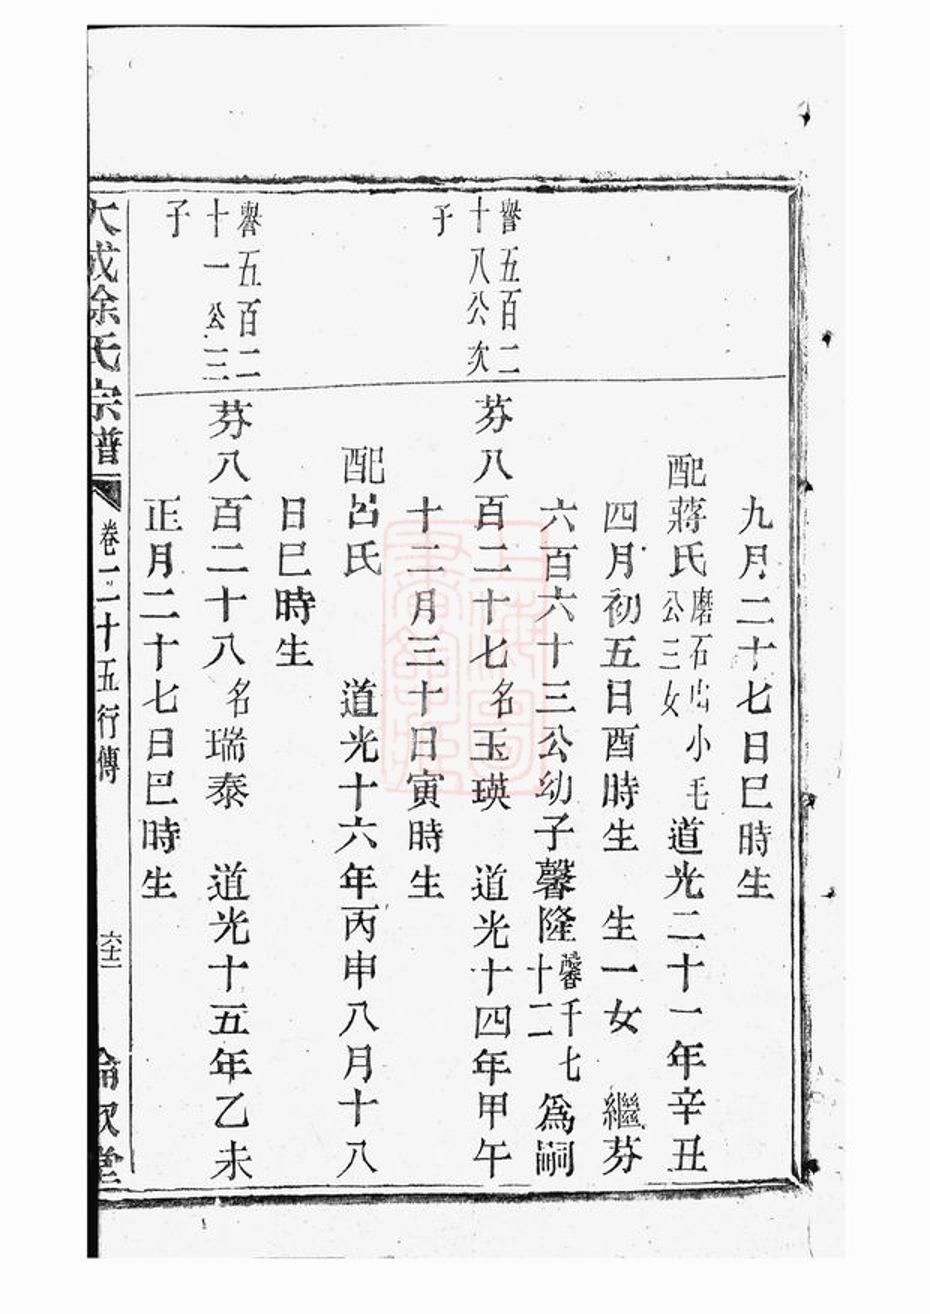 九月二十七日巳時生
配蔣氏磨石山小毛公三女道光二十一年辛丑
四月初五日酉時生 生一女 繼芬
六百六十三公幼子馨隆馨千七十二爲嗣
譽五百二十八公次子
芬八百二十七名玉瑛 道光十四年甲午
十二月三十日寅時生
配呂氏 道光十六年丙申八月十八
日巳時生
譽五百二十一公三子
芬八百二十八名瑞泰 道光十五年乙未
正月二十七日巳時生
大成余氏宗譜 卷二十五行傳 六十二 倫敘堂
上海圖書館藏